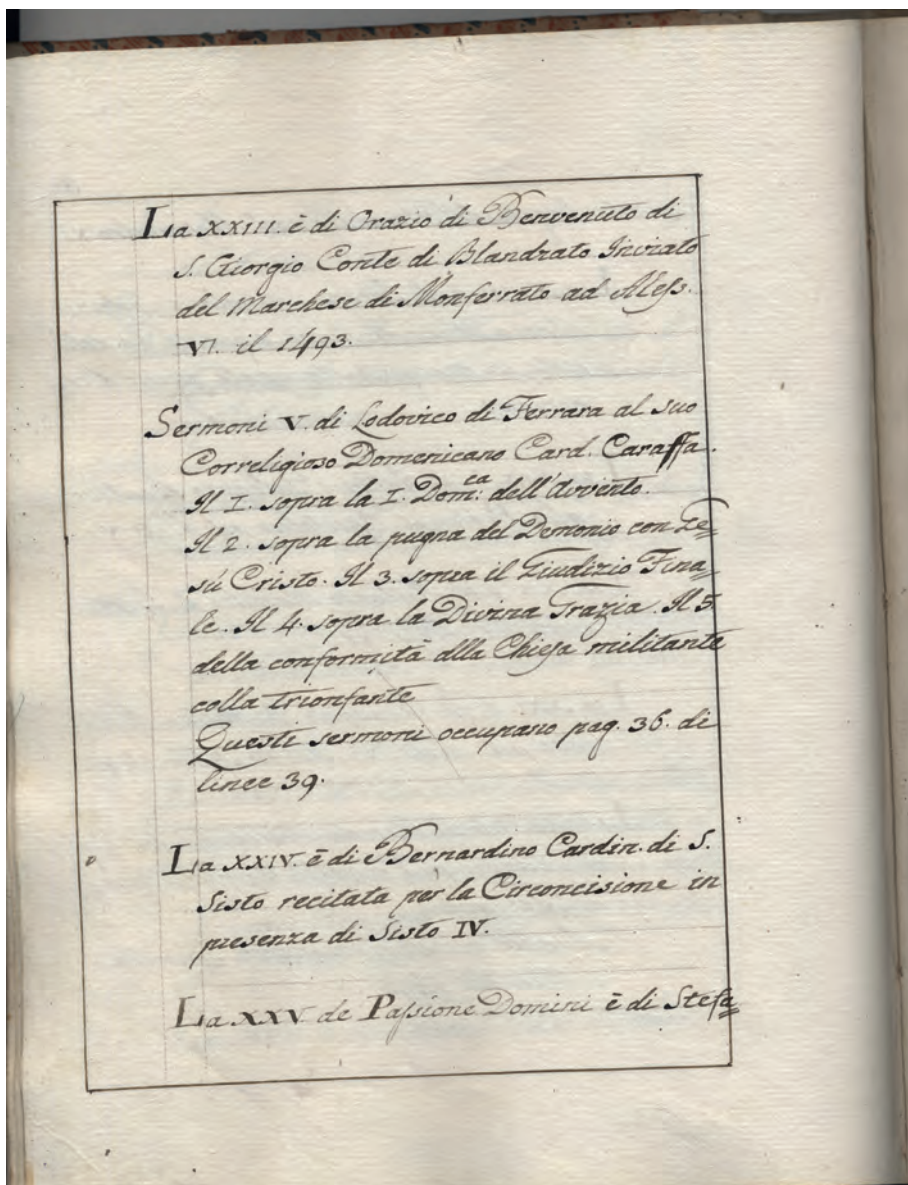 La XXIII. è di Orazio di Benvenuto di
S. Giorgio Conte di Blandrato Inviato
del Marchese di Monferrato ad Aless.
VI. il 1493.
Sermoni V. di Lodovico di Ferrara al suo
Correligioso Domenicano Card. Caraffa.
Il I. sopra la I. Dom.ca dell'Avvento.
Il 2. sopra la pugna del Demonio con Ge=
sù Cristo. Il 3. sopra il Giudizio Fina=
le. Il 4. sopra la Divina Grazia. Il 5
della conformità alla Chiesa militante
colla trionfante
Questi sermoni occupano pag. 36. di
linee 39.
La XXIV. è di Bernardino Cardin. di S.
Sisto recitata per la Circoncisione in
presenza di Sisto IV.
La XXV de Passione Domini è di Stefa=